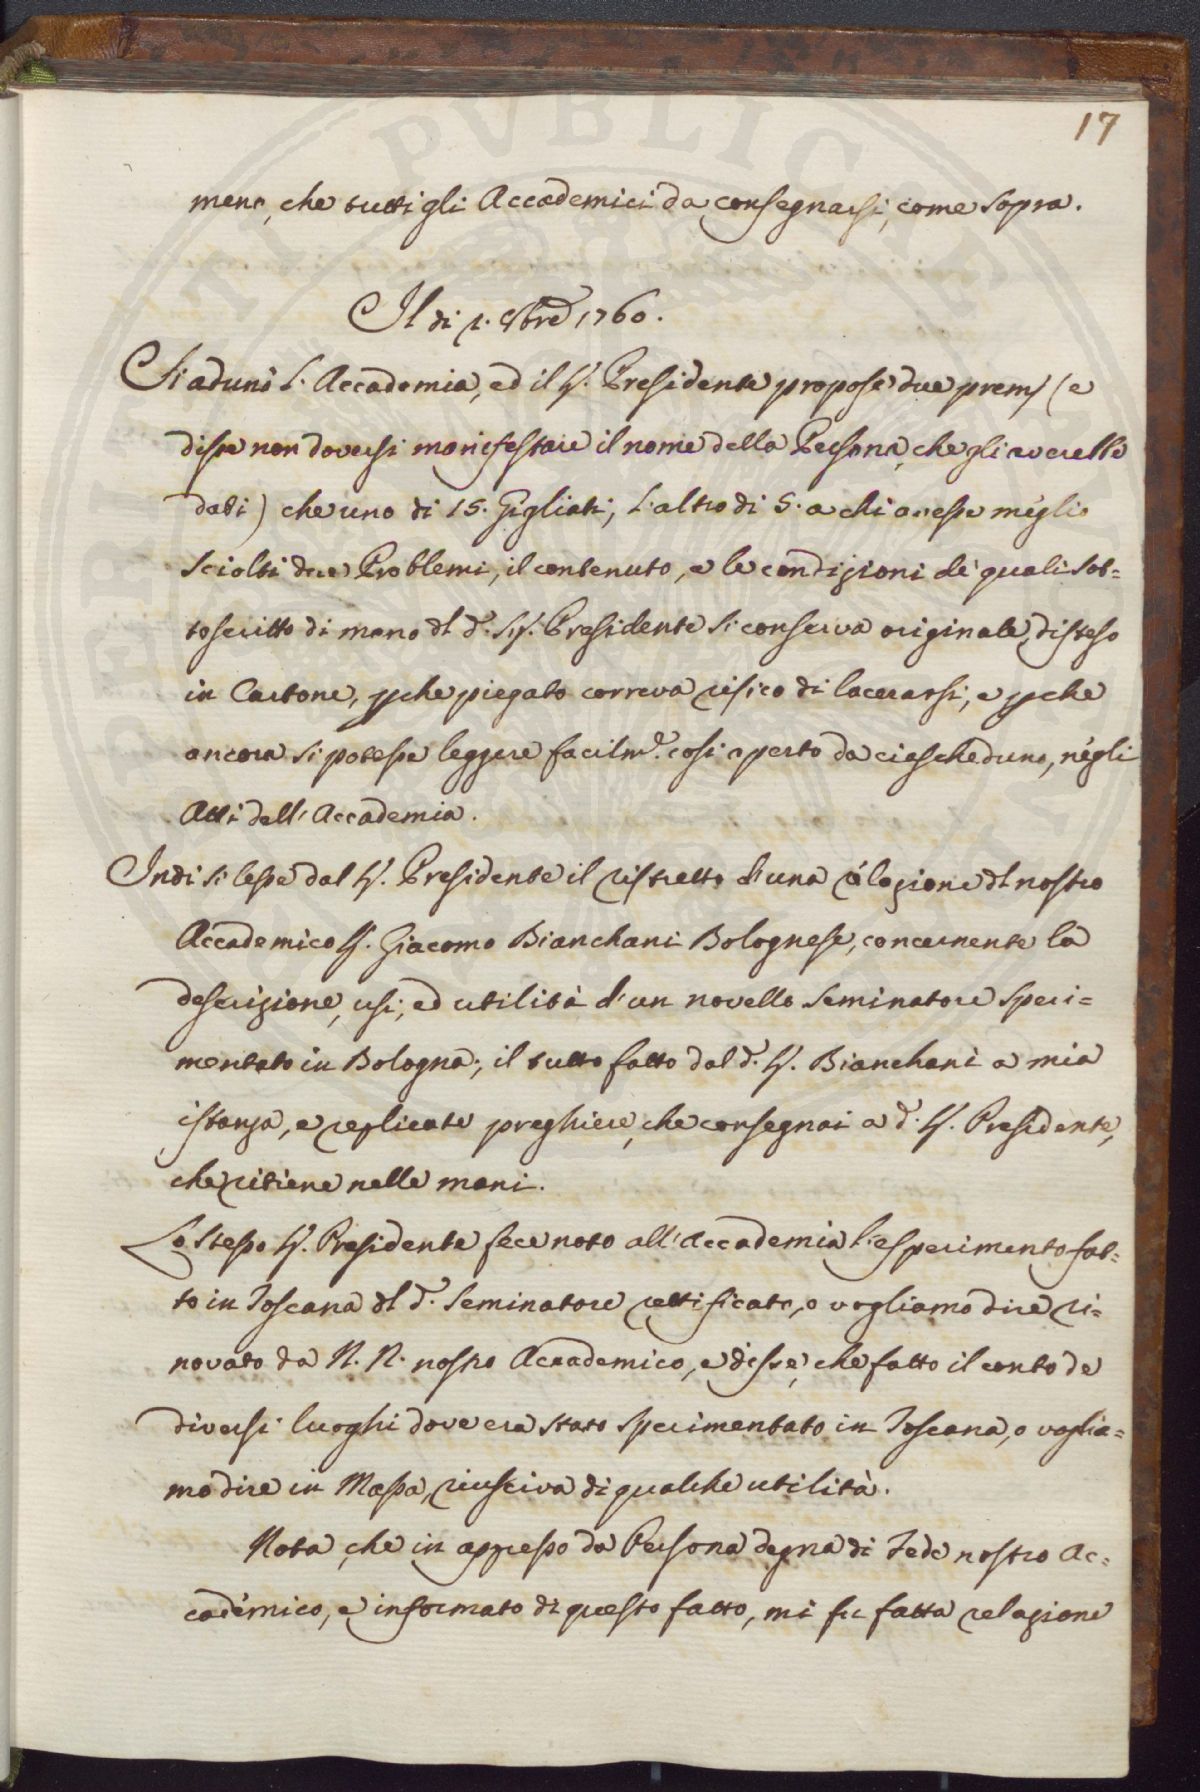 17
meno, che tutti gli Accademici da consegnarsi, come sopra.
Il di 1. 8bre 1760.
Si adunò l'Accademia, ed il Sig. Presidente propose due premj (e
disse non doversi manifestare il nome della Persona, che gli averebbe
dati) che uno di 15. Gigliati, l'altro di 5. a chi avesse meglio
sciolti due Problemi, il contenuto, e le condizioni de' quali sot=
toscritto di mano dl d.o Sig. Presidente si conserva originale, disteso
in Cartone, pche piegato correva risico di lacerarsi, e pche
ancora si potesse leggere facilmte. cosi aperto da ciascheduno, negli
Atti dell'Accademia.
Indi si lesse dal Sig. Presidente il ristretto d'una relazione dl nostro
Accademico Sig. Giacomo Bianchani Bolognese, concernente la
descrizione, usi, ed utilità d'un novello Seminatore speri=
mentato in Bologna; il tutto fatto dal d.o Sig. Bianchani a mia
istanza, e replicate preghiere, che consegnai a d.o Sig. Presidente,
che ritiene nelle mani.
Lo stesso Sig. Presidente fece noto all'Accademia l'esperimento fat=
to in Toscana dl d.o Seminatore rettificato, o vogliamo dire ri=
novato da N. N. nostro Accademico, e disse, che fatto il conto de
diversi luoghi dove era stato sperimentato in Toscana, o voglia=
mo dire in Massa, riusciva di qualche utilità.
Nota, che in appresso da Persona degna di Fede nostro Ac=
cademico, e informato di questo fatto, mi fu fatta relazione